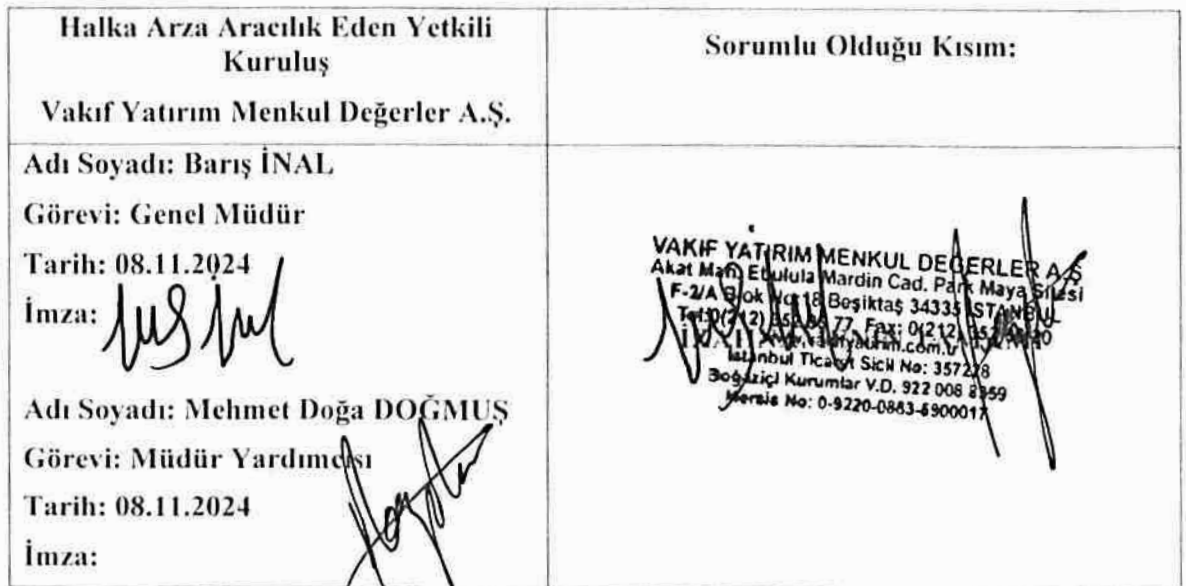 Halka Arza Aracılık Eden Yetkili
Kuruluş
Vakıf Yatırım Menkul Değerler A.Ş.
Sorumlu Olduğu Kısım:
Adı Soyadı: Barış İNAL
Görevi: Genel Müdür
Tarih: 08.11.2024
İmza:
Adı Soyadı: Mehmet Doğa DOĞMUŞ
Görevi: Müdür Yardımcısı
Tarih: 08.11.2024
İmza:
VAKIF YATIRIM MENKUL DEĞERLER A.Ş
Akat Mah. Ebulula Mardin Cad. Park Maya Sitesi
F-2/A Blok No:18 Beşiktaş 34335 İSTANBUL
77 Fax: 0(212)
İstanbul Ticaret Sicil No: 357228
Boğaziçi Kurumlar V.D. 922 008 8359
Mersis No: 0-9220-0883-5900017